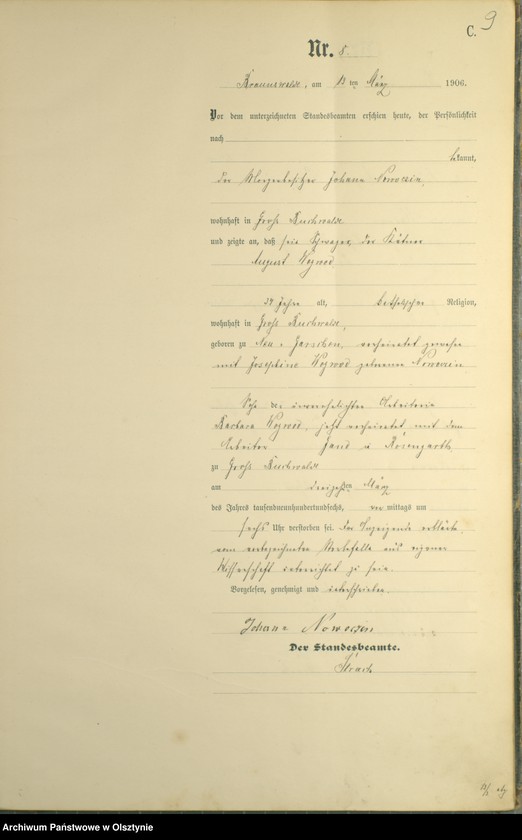 C. 9
Nr. 8.
Braunswalde, am 13 ten März 1906.
Vor dem unterzeichneten Standesbeamten erschien heute, der Persönlichkeit
nach
bekannt,
der Johann Nowoczin,
wohnhaft in Groß Buchwalde
und zeigte an, daß sein Schwager, der Käthner
August Woywod,
39 Jahre alt, katholischer Religion,
wohnhaft in Groß Buchwalde,
geboren zu Neu, verheiratet gewesen
mit Josephine Woywod geborene Nowoczin
Sohn der unverehelichten Arbeiterin
Barbara Woywod, jetzt verheiratet mit dem
Arbeiter in Rosengarth
zu Groß Buchwalde
am dreizehnten März
des Jahres tausendneunhundertundsechs, vor mittags um
sechs Uhr verstorben sei. Der Anzeigende erklärte,
vom Sterbefalle aus eigener
Wissenschaft unterrichtet zu sein.
Vorgelesen, genehmigt und unterschrieben
Johann Nowoczin
Der Standesbeamte.
Archiwum Państwowe w Olsztynie